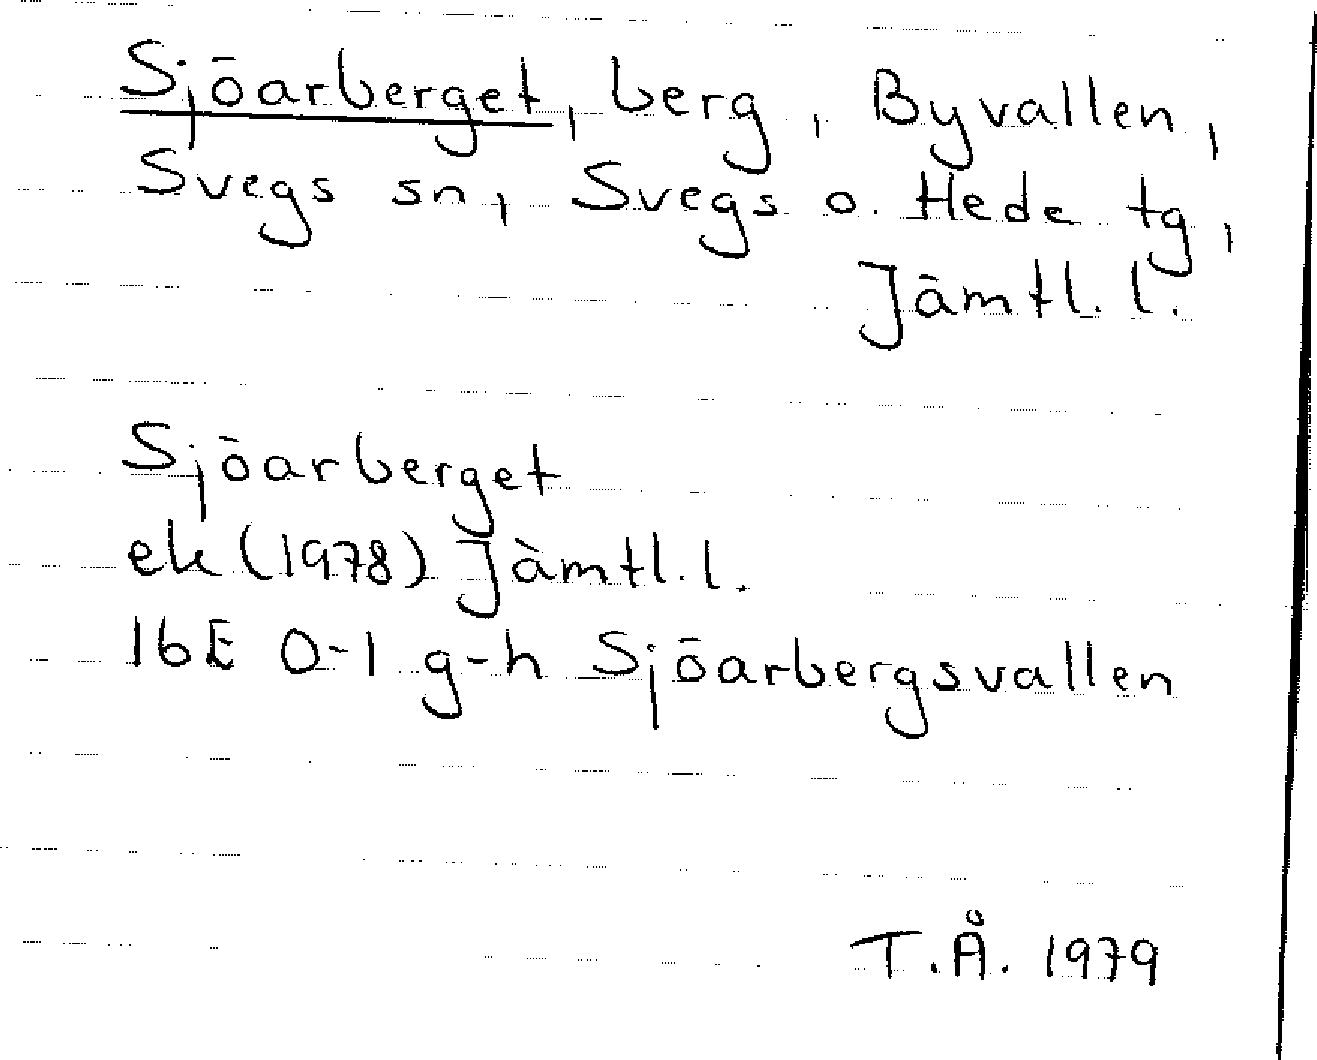 Sjöarberget, berg, Byvallen,
Svegs sn, Svegs o. Hede tg,
Jämtl. l.
Sjöarberget
ek (1978) Jämtl. l.
16E 0-1 g-h Sjöarbergsvallen
T.Å. 1979